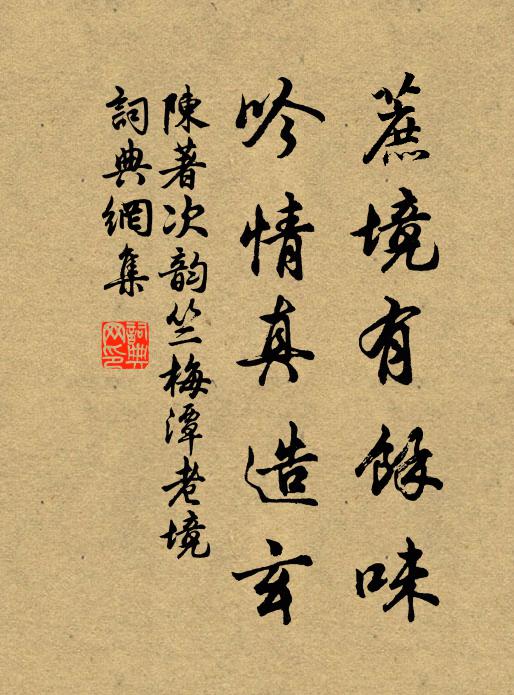 蔗境有餘味
吟情真造玄
陳著次韵竺梅潭老境
詞典網集
詞典网印